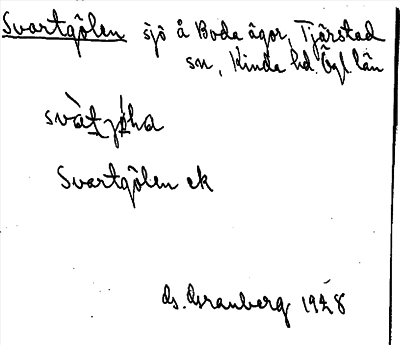 Svartgölen sjö å Boda ägor, Tjärstad
sn, Kinda hd. Ögl. län
Svartgölen ek
G. Granberg 1928